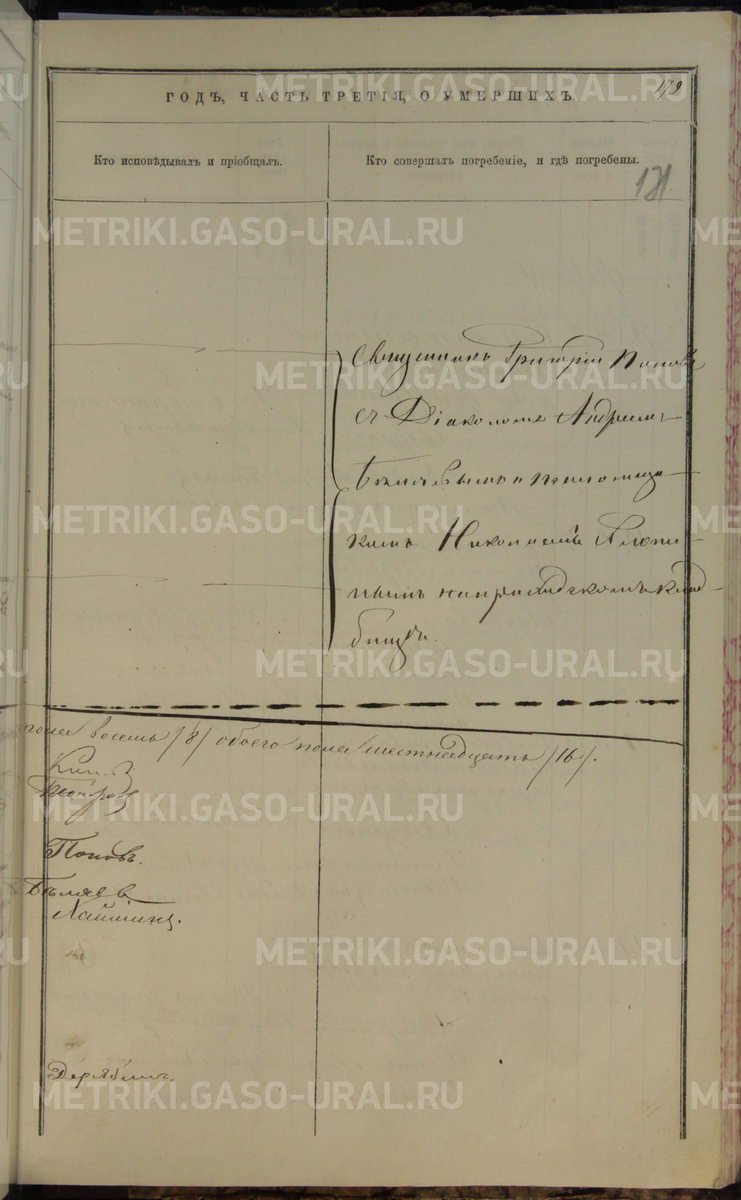 179
ГОДЪ, ЧАСТЬ ТРЕТІЯ, О УМЕРШИХЪ.
Кто исповѣдывалъ и пріобщалъ.
Кто совершалъ погребеніе, и гдѣ погребены.
121
Священникъ Григорій Поповъ
съ Діакономъ Андреемъ
Бѣляевымъ и псаломщи
комъ Николаемъ
на приходскомъ клад
бищѣ.
пола восемь /8/ обоего пола шестнадцать /16/.
Поповъ.
Бѣляевъ
Дерябинъ.
METRIKI.GASO-URAL.RU